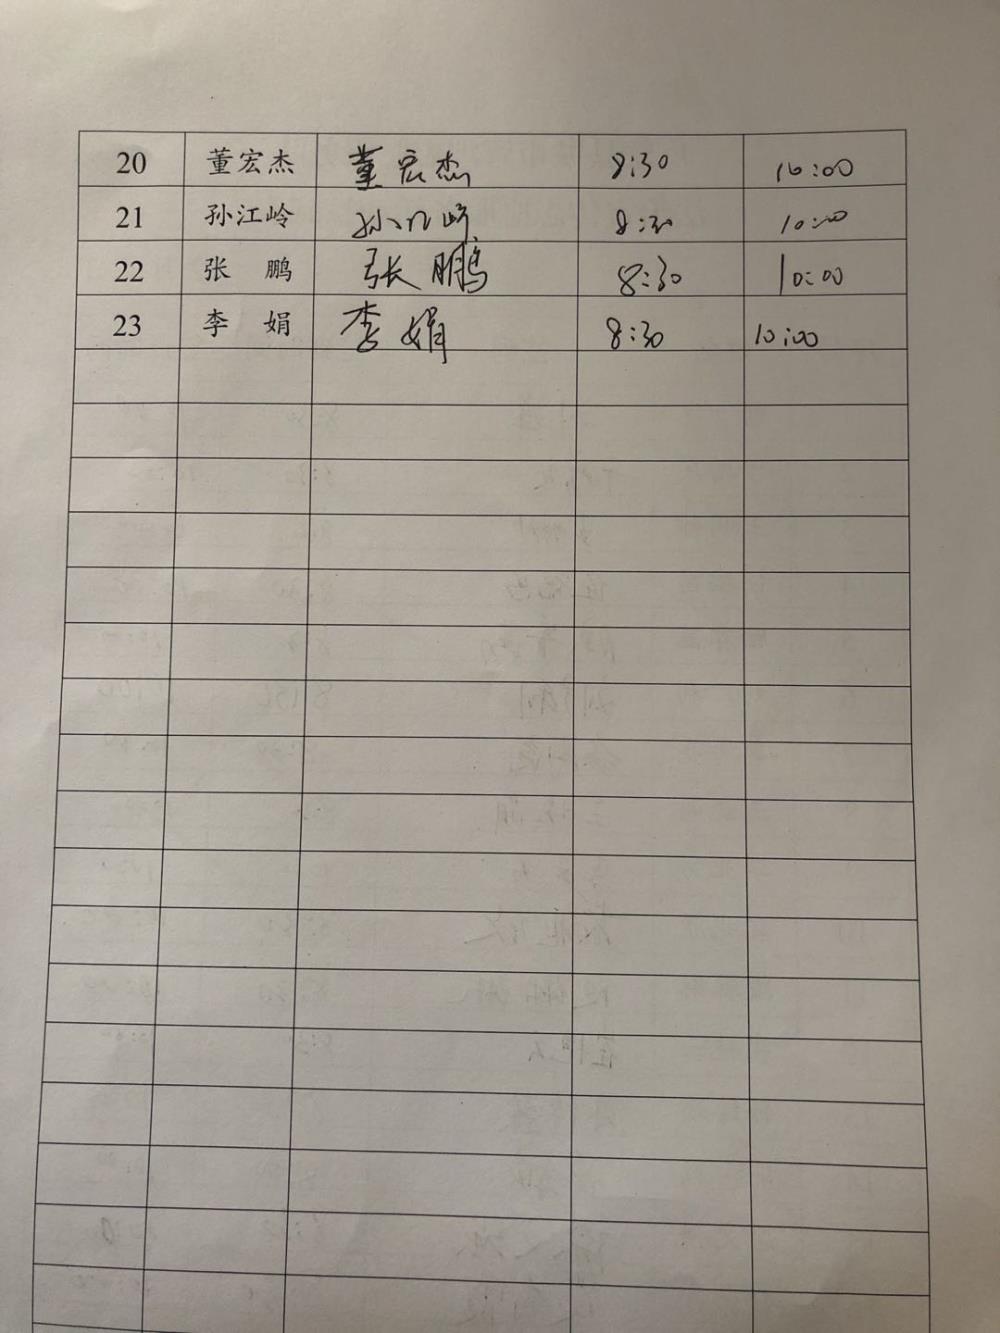 20 董宏杰 董宏杰 8:30 10:00
21 孙江岭 孙江岭 8:30 10:00
22 张 鹏 张鹏 8:30 10:00
23 李 娟 李娟 8:30 10:00